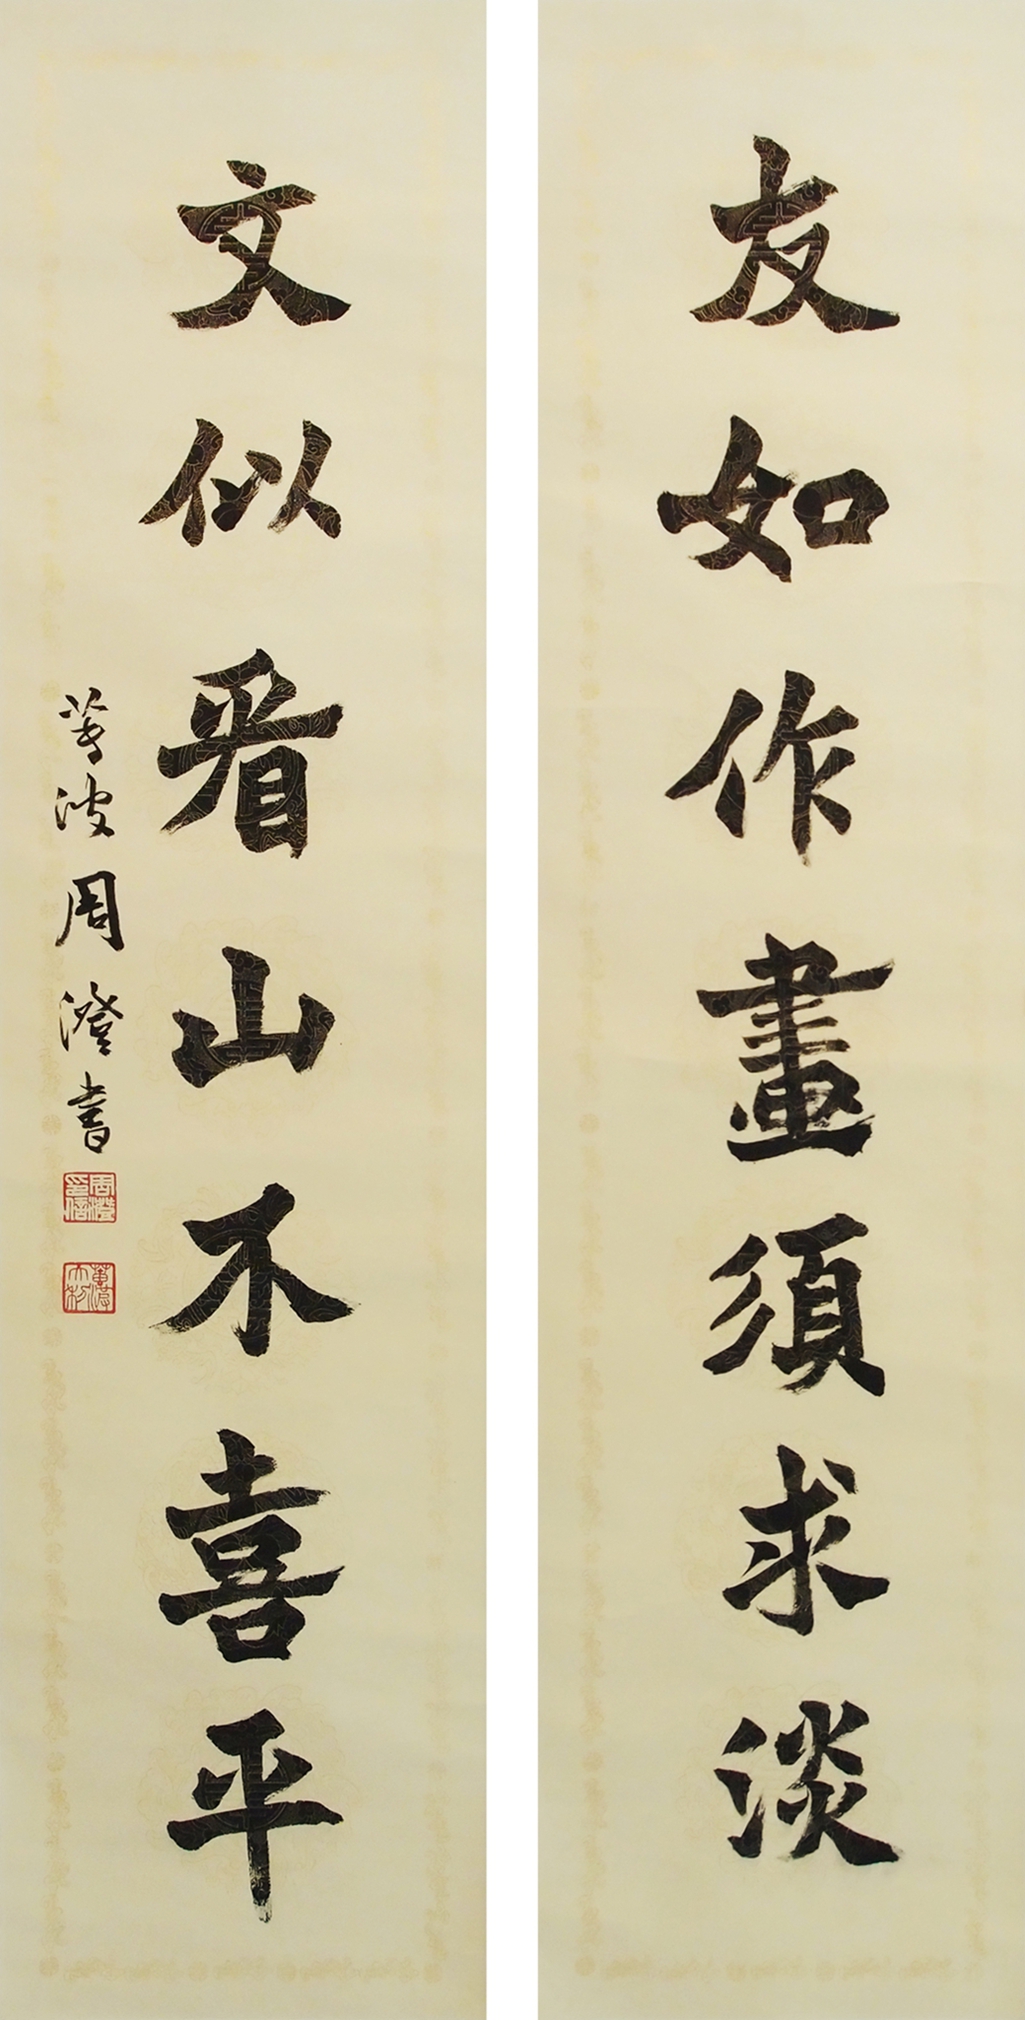 友如作畫須求淡
文似看山不喜平
蓴波周澄書
周澄印信